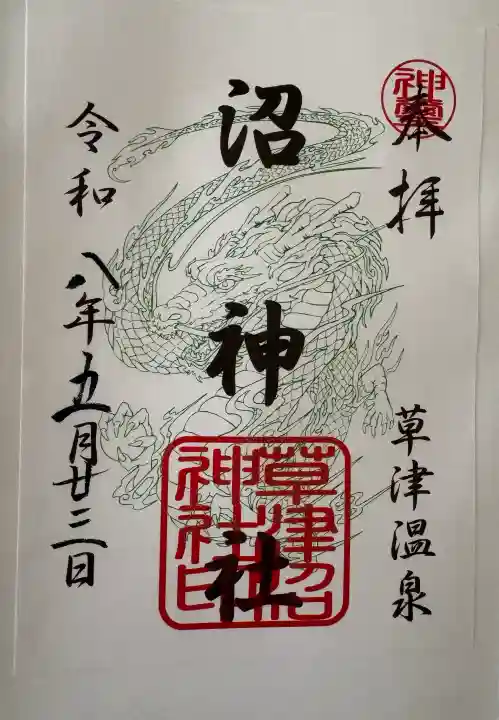 神璽
奉拝
草津温泉
沼神社
草津沼
神社印
令和八年五月廿三日